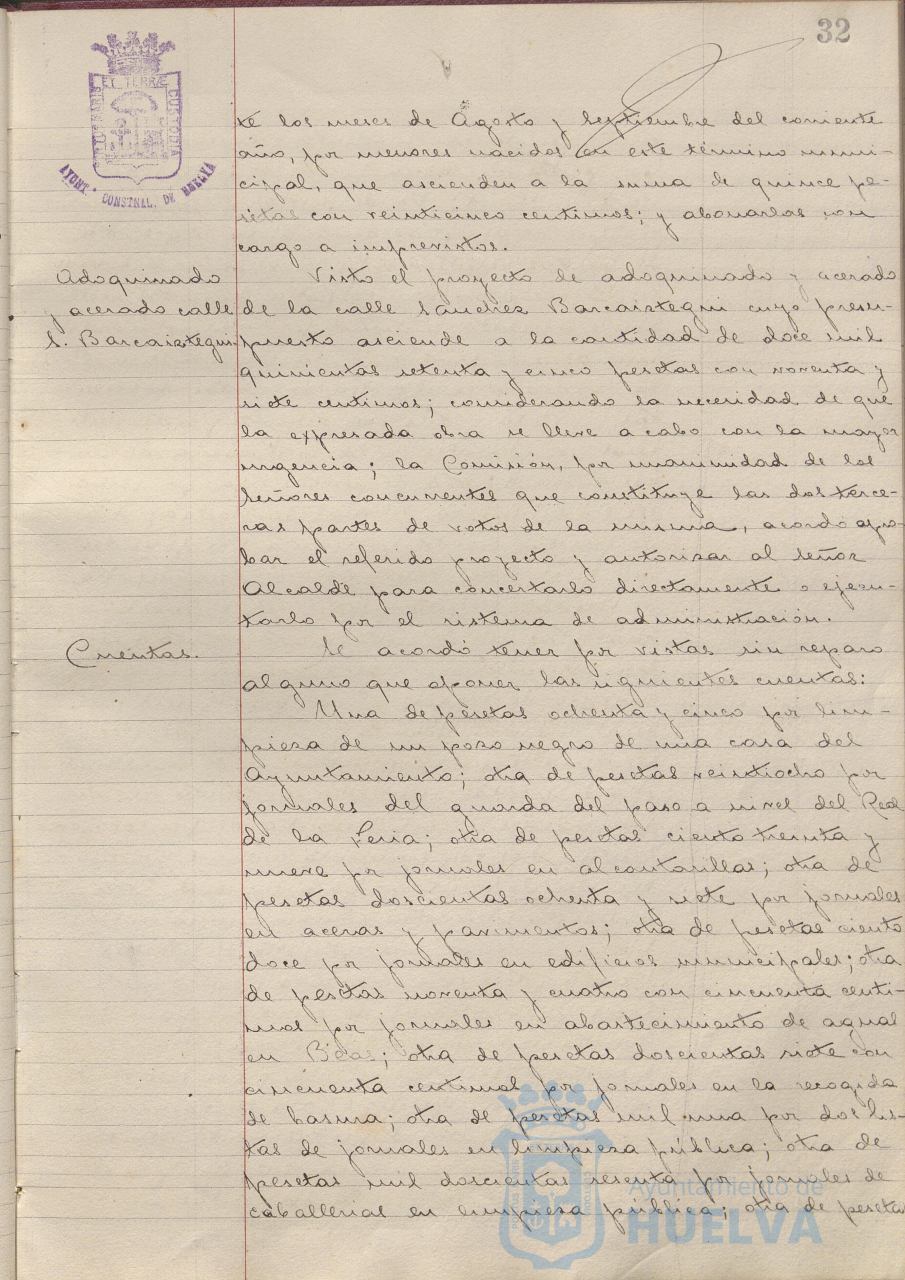 32
PORTUS MARIS ET TERRÆ CUSTODIA
AYUNT. CONSTNAL. DE HUELVA
te los meses de Agosto y Septiembre del corriente
año, por menores nacidos en este término muni-
cipal, que ascienden a la suma de quince pe-
setas con veinticinco centimos; y abonarlas con
cargo a imprevistos.
Adoquinado
y acerado calle
S. Barcaiztegui
Visto el proyecto de adoquinado y acerado
de la calle Sanchez Barcaiztegui cuyo presu-
puesto asciende a la cantidad de doce mil
quinientas setenta y cinco pesetas con noventa y
siete centimos; considerando la necesidad de que
la expresada obra se lleve a cabo con la mayor
urgencia; la Comisión, por unanimidad de los
señores concurrentes que constituye las dos terce-
ras partes de votos de la misma, acordó apro-
bar el referido proyecto y autorizar al señor
Alcalde para concertarlo directamente o ejecu-
tarlo por el sistema de administración.
Cuentas.
Se acordó tener por vistas sin reparo
alguno que oponer las siguientes cuentas:
Una de pesetas ochenta y cinco por lim-
pieza de un pozo negro de una casa del
Ayuntamiento; otra de pesetas veintiocho por
jornales del guarda del paso a nivel del Real
de la Feria; otra de pesetas ciento treinta y
nueve por jornales en alcantarillas; otra de
pesetas doscientas ochenta y siete por jornales
en aceras y pavimentos; otra de pesetas ciento
doce por jornales en edificios municipales; otra
de pesetas noventa y cuatro con cincuenta centi-
mos por jornales en abastecimiento de aguas
en Beas; otra de pesetas doscientas siete con
cincuenta centimos por jornales en la recogida
de basura; otra de pesetas mil una por dos lis-
tas de jornales en limpieza pública; otra de
pesetas mil doscientas sesenta por jornales de
caballerias en limpieza pública; otra de pesetas
Ayuntamiento de
HUELVA